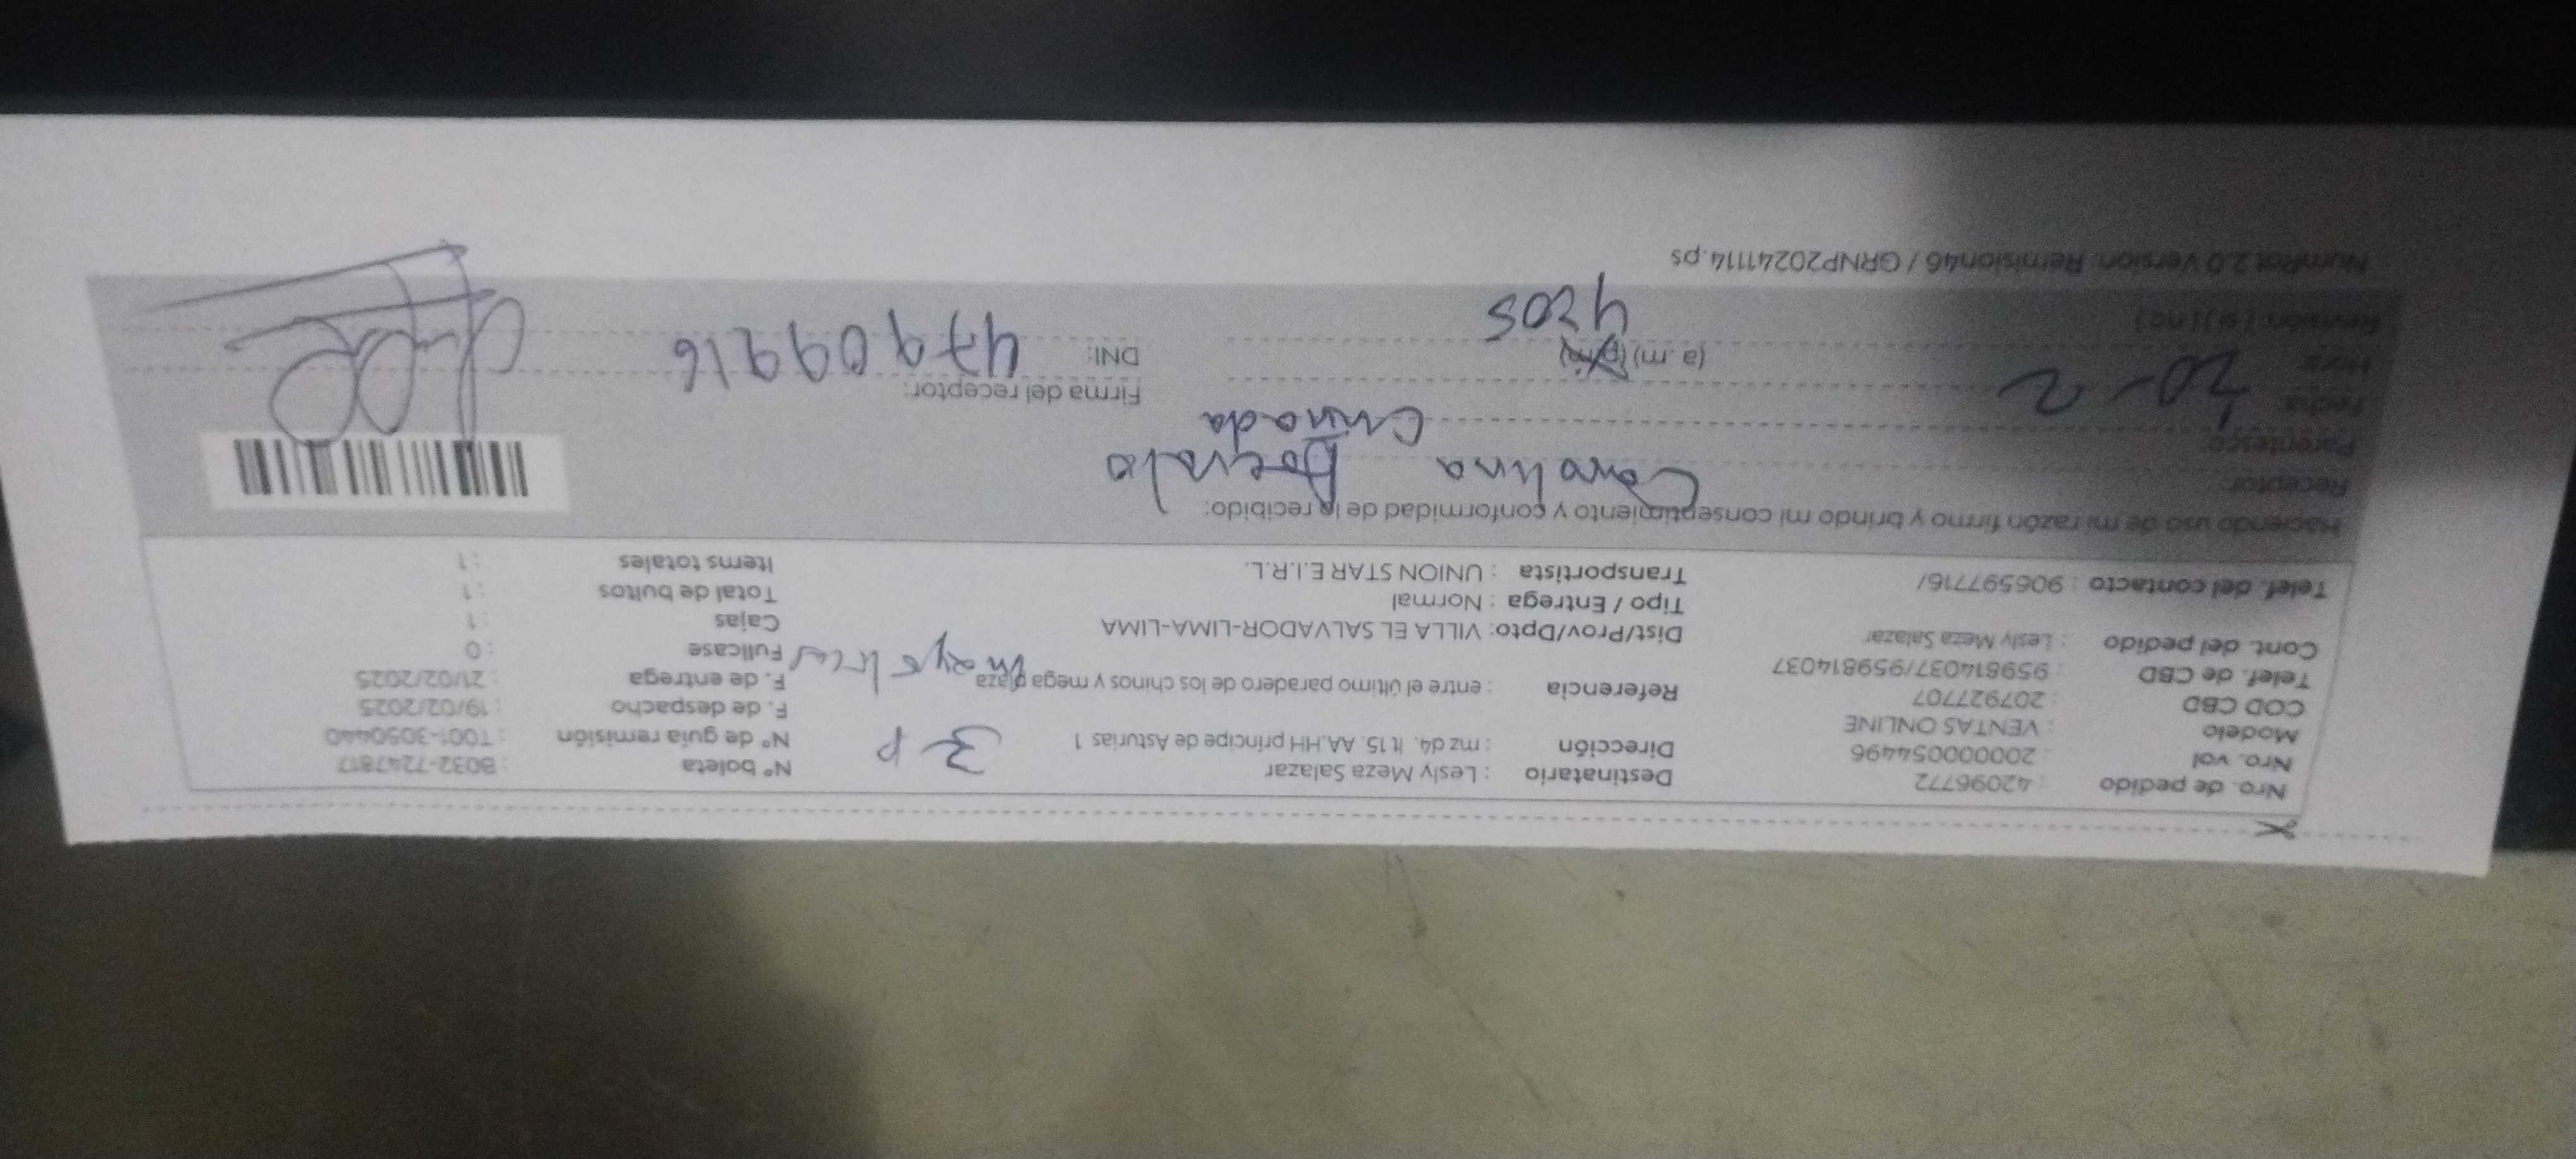 Nro. de pedido : 42096772
Nro. vol : 2000000054496
Modelo : VENTAS ONLINE
COD CBD : 207927707
Telef. de CBD : 959814037/959814037
Cont. del pedido : Lesly Meza Salazar
Telef. del contacto : 906597716/
Destinatario : Lesly Meza Salazar
Dirección : mz d4. lt 15. AA.HH príncipe de Asturias 1
3 P
Referencia : entre el último paradero de los chinos y mega plaza
Dist/Prov/Dpto: VILLA EL SALVADOR-LIMA-LIMA
Tipo / Entrega : Normal
Transportista : UNION STAR E.I.R.L.
N° boleta : B032-7247817
N° de guía remisión : T001-3050440
F. de despacho : 19/02/2025
F. de entrega : 21/02/2025
Fullcase : 0
Cajas : 1
Total de bultos : 1
Items totales : 1
Haciendo uso de mi razón firmo y brindo mi consentimiento y conformidad de lo recibido:
Receptor: Carolina
Parentesco:
Fecha: 20-2
Hora: (a.m) (p.m)
Revisión: (si) (no)
Firma del receptor:
DNI: 47909916
NumRot 2.0 Version: Remision46 / GRNP20241114.ps